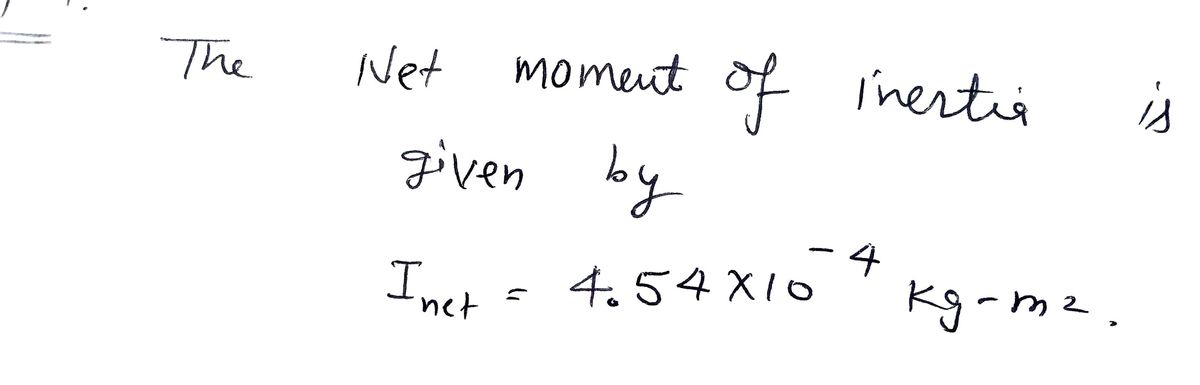 The Net moment of inertia is
given by
I_net = 4.54 X10^-4 Kg-m2.